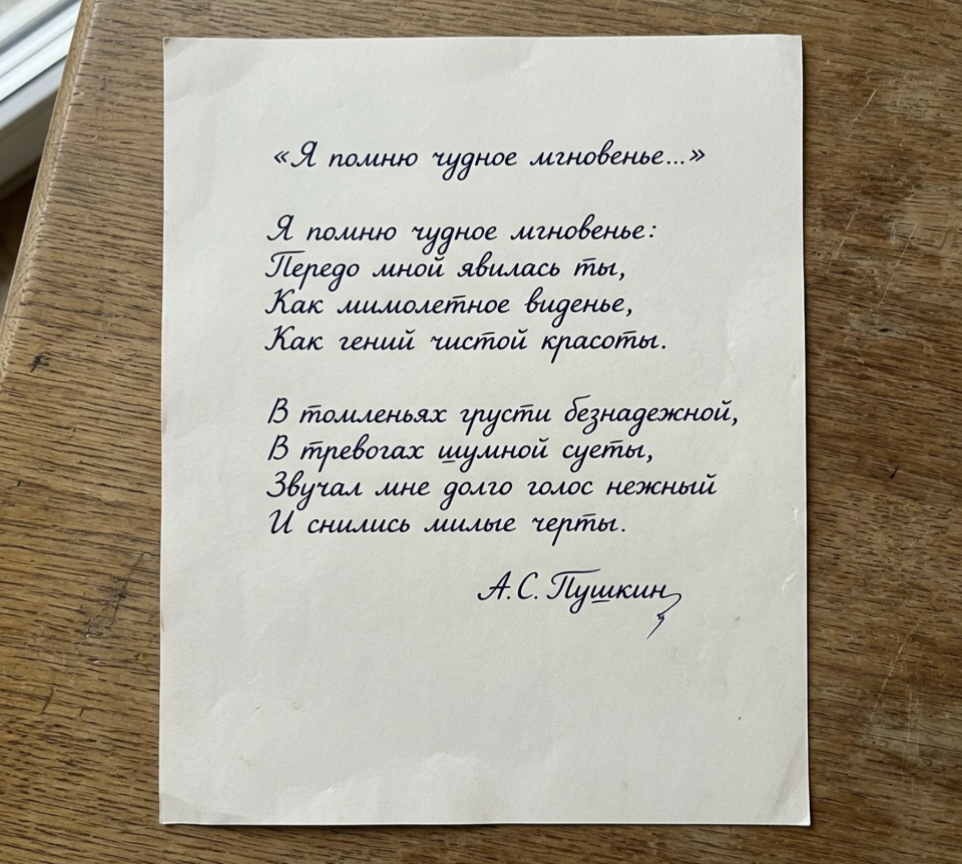 «Я помню чудное мгновенье...»
Я помню чудное мгновенье:
Передо мной явилась ты,
Как мимолетное виденье,
Как гений чистой красоты.
В томленьях грусти безнадежной,
В тревогах шумной суеты,
Звучал мне долго голос нежный
И снились милые черты.
А.С. Пушкин